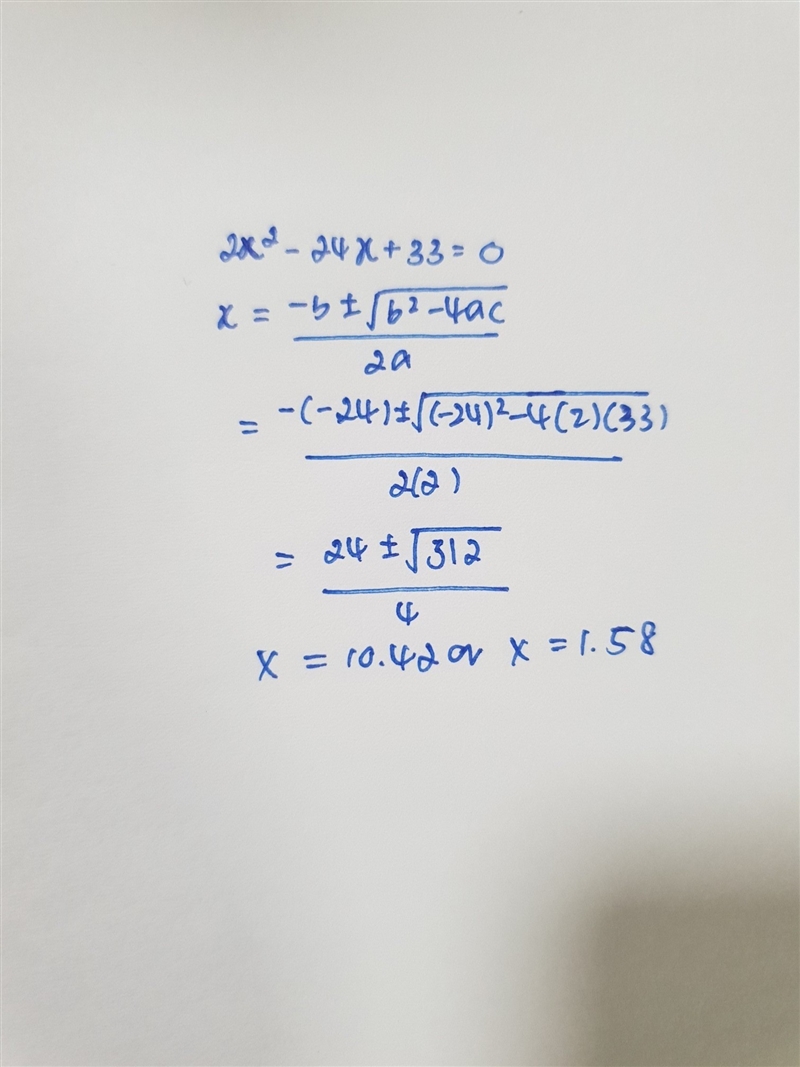 2x² - 24x + 33 = 0
x = -b ± √b² - 4ac
2a
= -(-24) ± √(-24)² - 4(2)(33)
2(2)
= 24 ± √312
4
x = 10.42 or x = 1.58